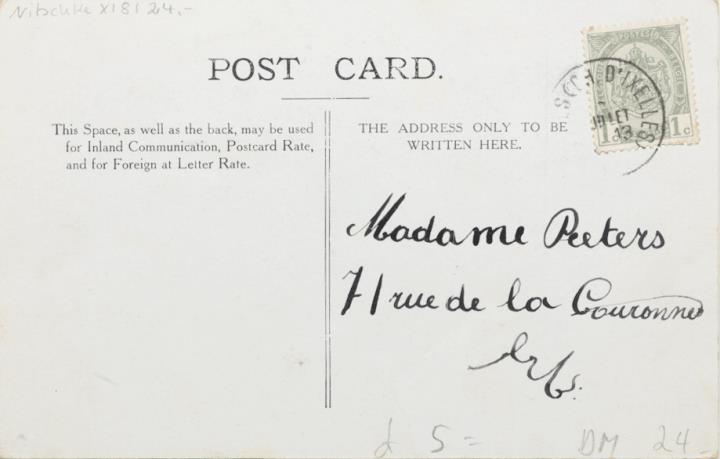 Nitschke XI81 24.-
POST CARD.
This Space, as well as the back, may be used
for Inland Communication, Postcard Rate,
and for Foreign at Letter Rate.
THE ADDRESS ONLY TO BE
WRITTEN HERE.
D'IXELLES
13
1c
Madame Peeters
71 rue de la Couronne
£ 5 = DM 24-